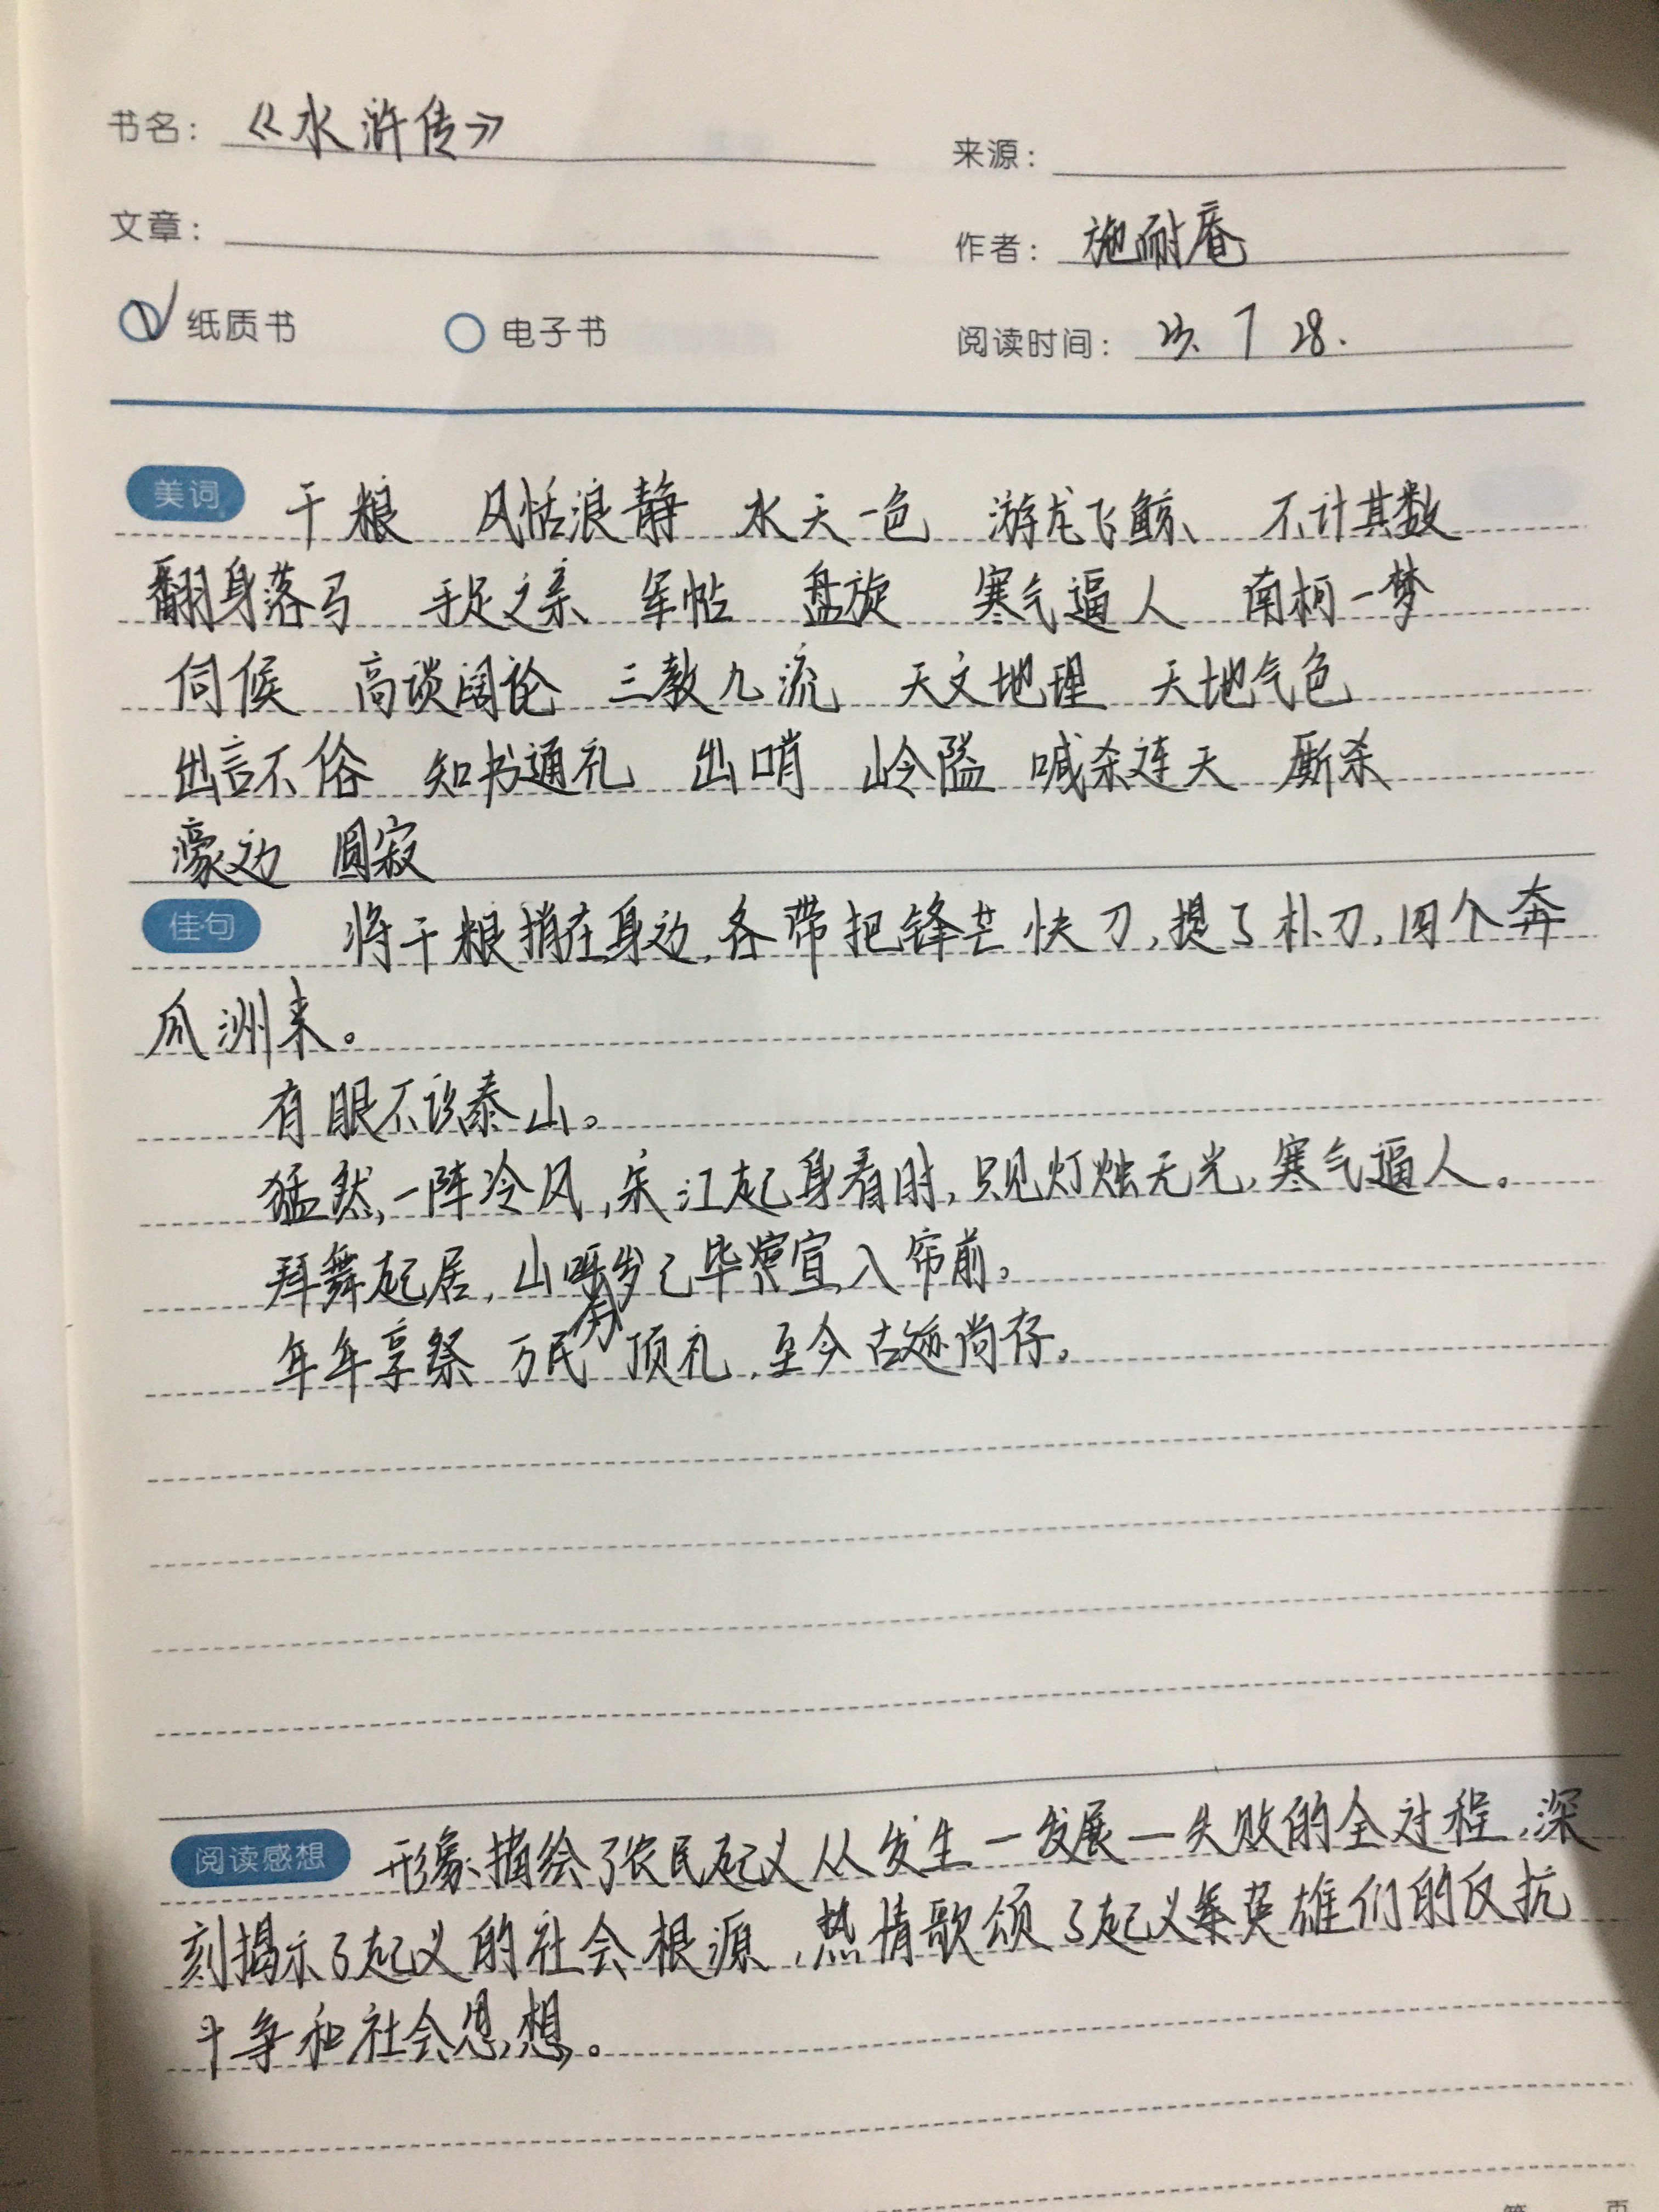 书名： 《水浒传》
来源：
文章：
作者： 施耐庵
纸质书 电子书
阅读时间： 23. 7 28.
美词 干粮 风恬浪静 水天一色 游龙飞鲸 不计其数
翻身落马 手足之亲 军帖 盘旋 寒气逼人 南柯一梦
伺候 高谈阔论 三教九流 天文地理 天地气色
出言不俗 知书通礼 出哨 岭隘 喊杀连天 厮杀
濠边 圆寂
佳句 将干粮捎在身边,各带把锋芒快刀,提了朴刀,四个奔
瓜洲来。
有眼不识泰山。
猛然,一阵冷风,宋江起身看时,只见灯烛无光,寒气逼人。
拜舞起居,山呼岁已毕 宣入帘前。
年年享祭 万民 顶礼,至今古迹尚存。
阅读感想 形象描绘了农民起义从发生一发展一失败的全过程,深
刻揭示了起义的社会根源,热情歌颂了起义英雄们的反抗
斗争和社会思想。
第 页